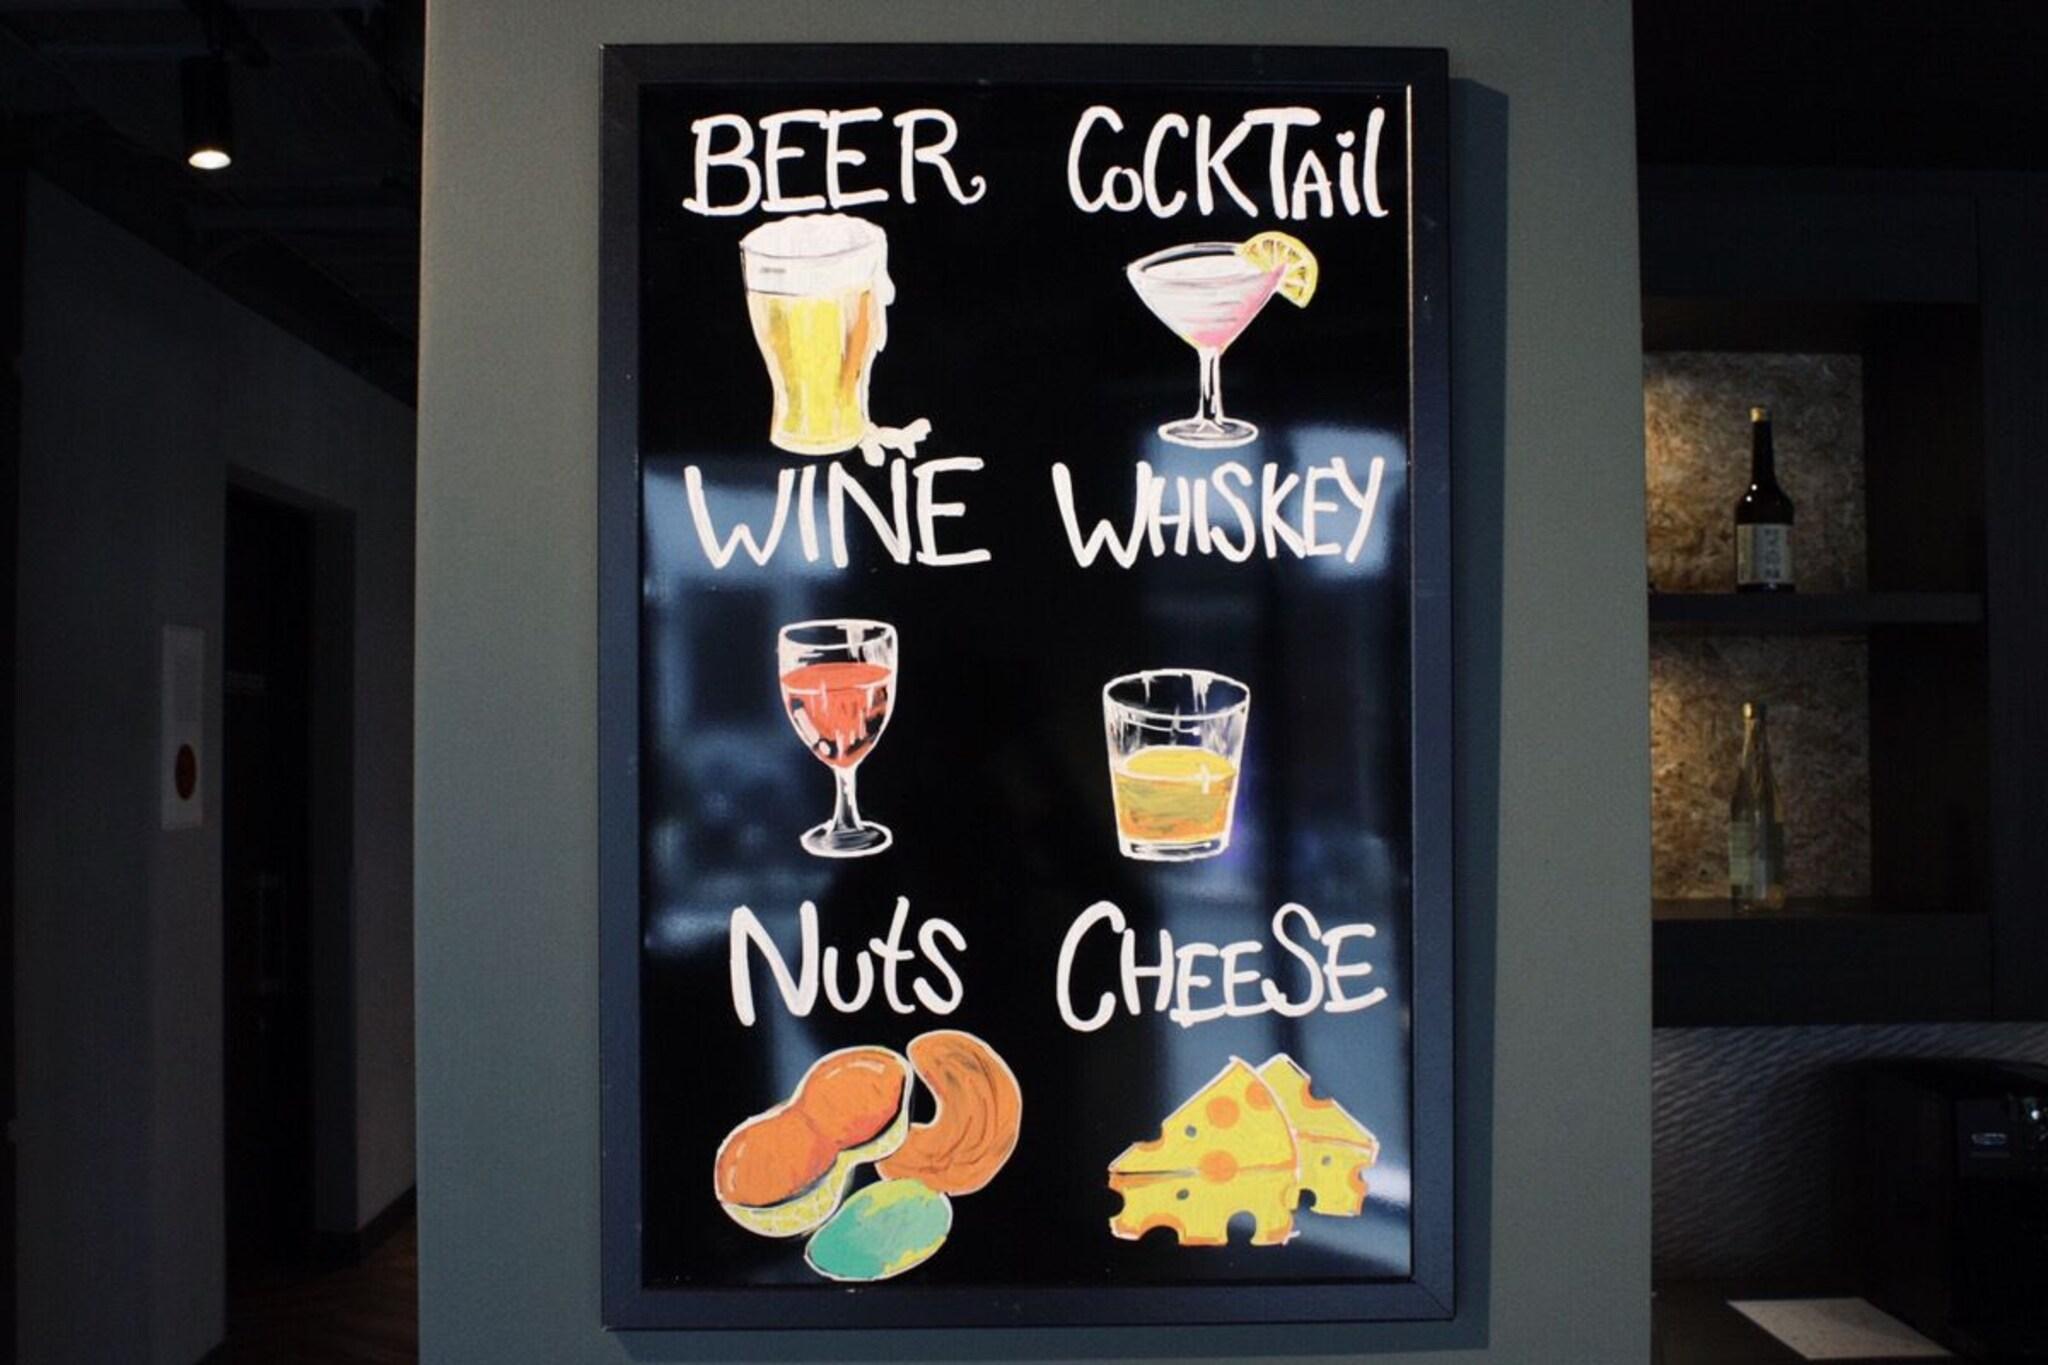 BEER COCKTAil
WINE WHISKEY
Nuts CHEESE